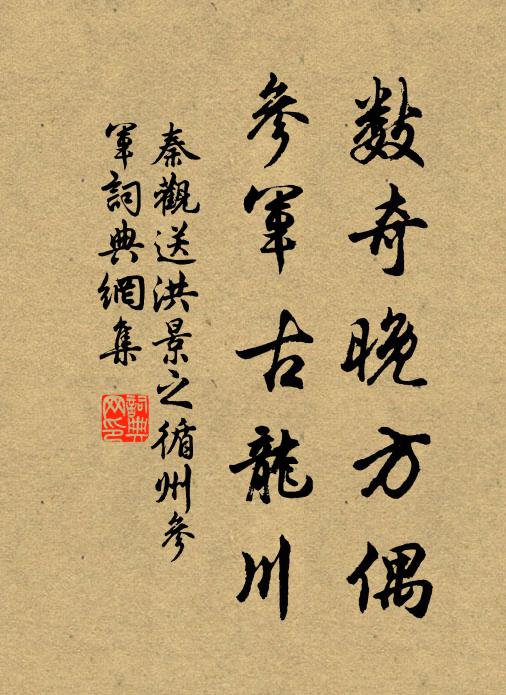 數奇晚方偶
參軍古龍川
秦觀送洪景之循州參
軍詞典網集
詞典網印